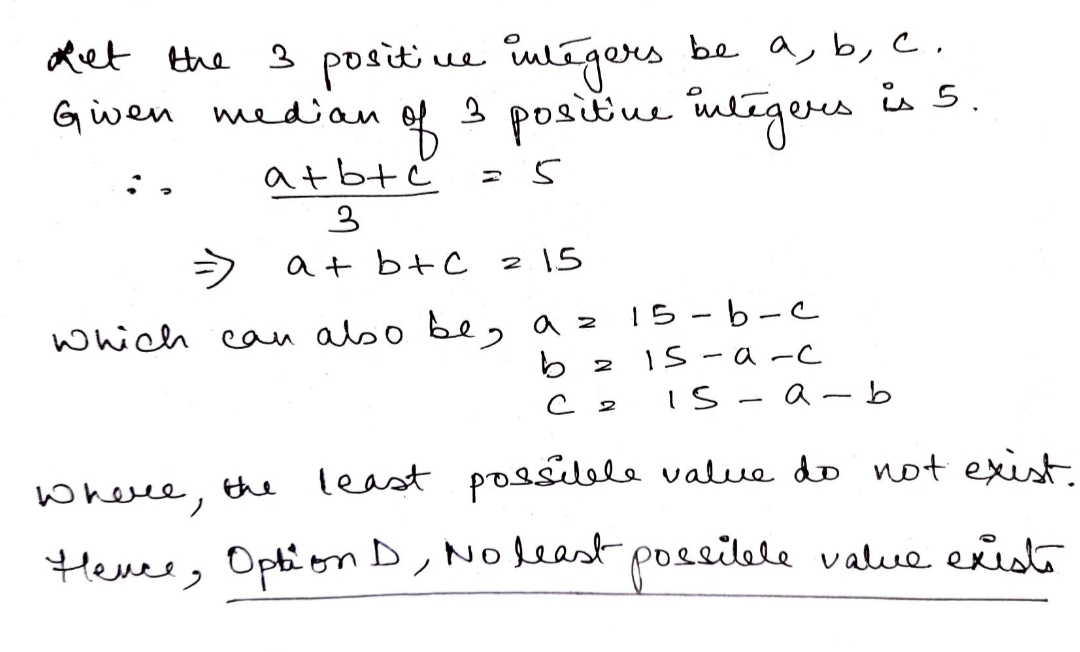 Let the 3 positive integers be a, b, c.
Given median of 3 positive integers is 5.
∴ a+b+c / 3 = 5
⇒ a + b + c = 15
Which can also be, a = 15 - b - c
b = 15 - a - c
c = 15 - a - b
Where, the least possible value do not exist.
Hence, Option D, No least possible value exists